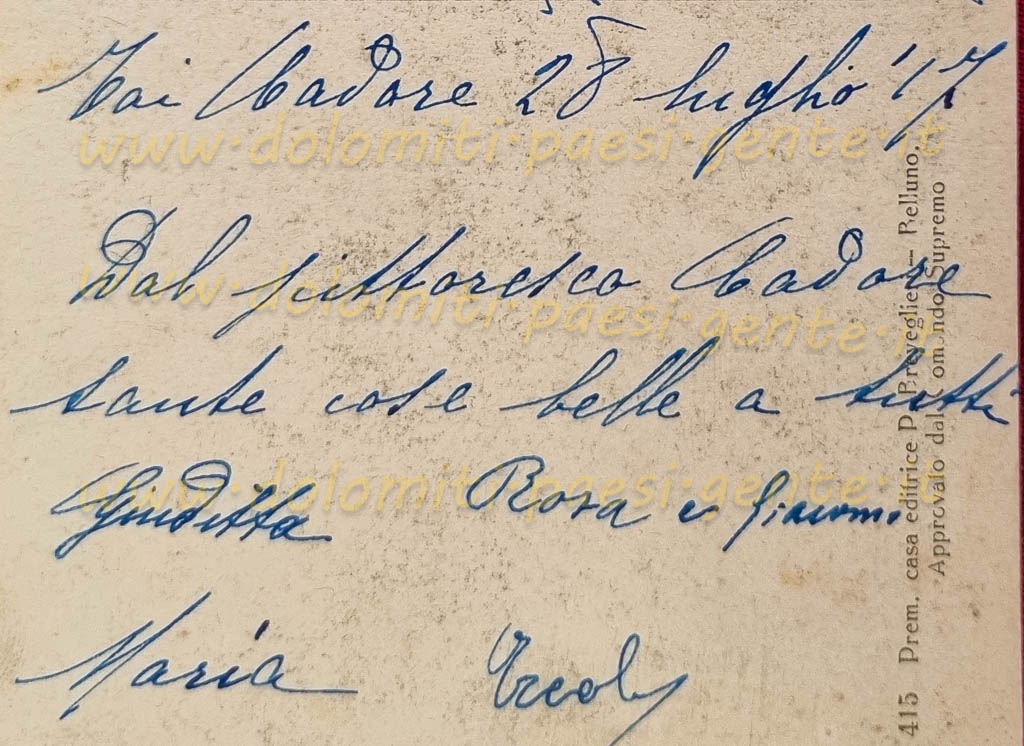 Tai Cadore 28 luglio '17
Dal pittoresco Cadore
tante cose belle a tutti
Giuditta Rosa e Giacomo
Maria Ercole
415 Prem. casa editrice D. Breveglieri - Belluno,
Approvato dal Comando Supremo
www.dolomiti-paesi-gente.it
www.dolomiti-paesi-gente.it
www.dolomiti-paesi-gente.it